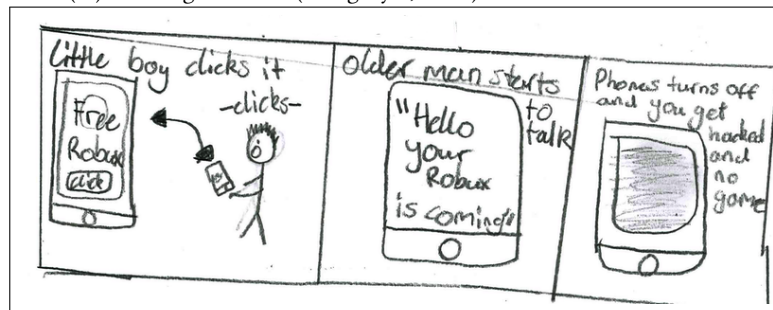 Little boy clicks it
-clicks-
Free
Robux
click
Older man starts
to
talk
"Hello
your
Robux
is coming"
Phones turns off
and you get
hacked
and
no
game